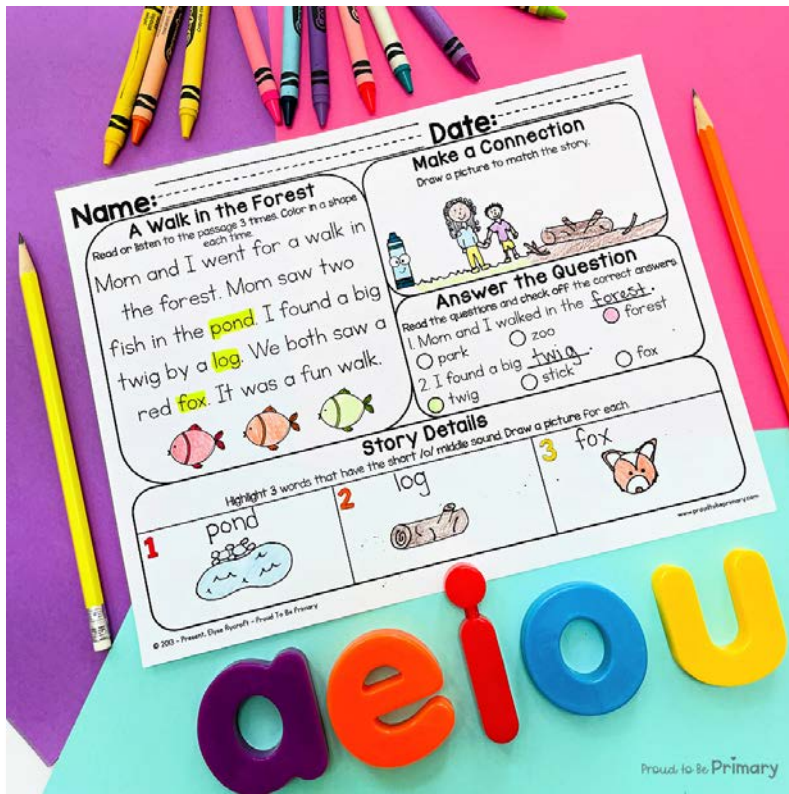 Name:
Date:
A Walk in the Forest
Read or listen to the passage 3 times. Color in a shape
each time.
Mom and I went for a walk in
the forest. Mom saw two
fish in the pond. I found a big
twig by a log. We both saw a
red fox. It was a fun walk.
Make a Connection
Draw a picture to match the story.
Answer the Question
Read the questions and check off the correct answers.
1. Mom and I walked in the forest.
park zoo forest
2. I found a big twig.
twig stick fox
Story Details
Highlight 3 words that have the short /o/ middle sound. Draw a picture for each.
1 pond
2 log
3 fox
© 2013 - Present, Elyse Rycroft - Proud To Be Primary
www.proudtobeprimary.com
a e i o u
Proud to Be Primary